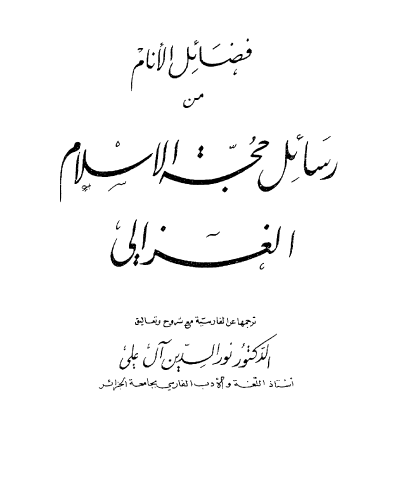 فضائل الأنام
من
رسائل حجة الإسلام
الغزالي
ترجمها عن الفارسية مع شروح وتعاليق
الدكتور نور الدين آل علي
أستاذ اللغة والأدب الفارسي بجامعة الجزائر